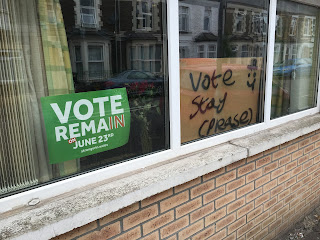 VOTE
REMAIN
on
JUNE 23RD
Vote :)
Stay
(PLEASE)